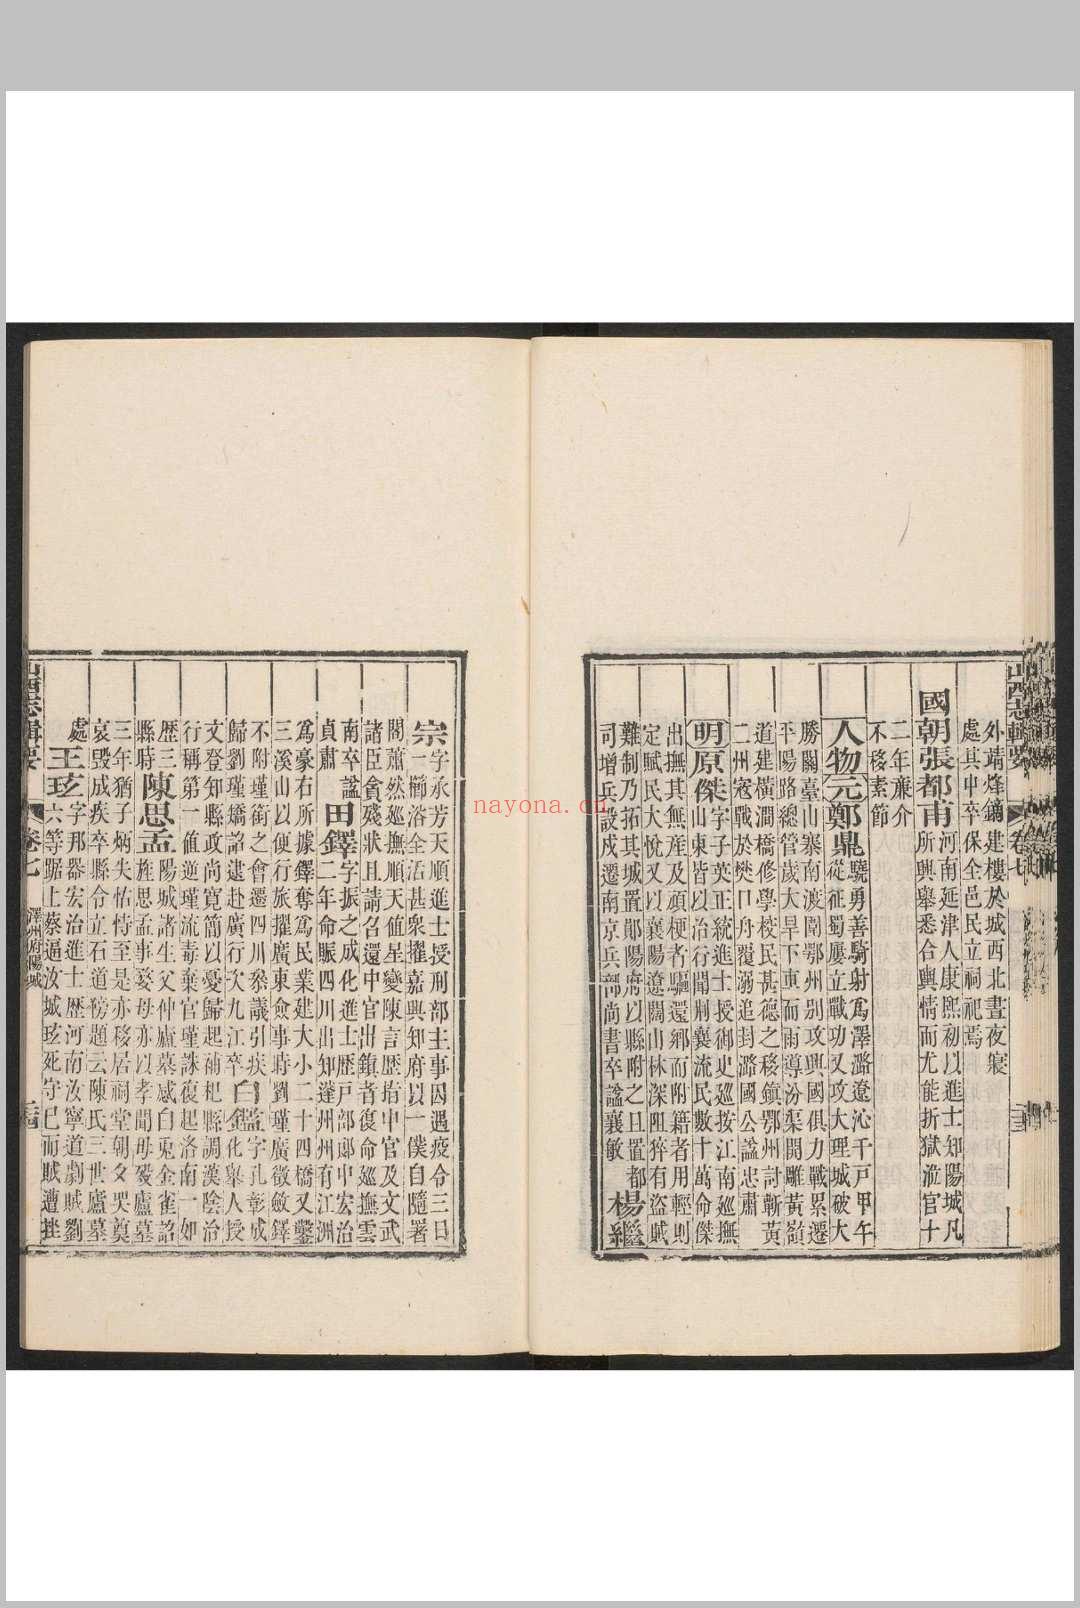 山西志輯要
卷七
外靖烽鏑建樓於城西北晝夜寢
處其中卒保全邑民立祠祀焉
國朝張都甫河南延津人康熙初以進士知陽城凡
所興舉悉合輿情而尤能折獄涖官十
二年亷介
不移素節
人物元鄭鼎驍勇善騎射爲澤潞遼沁千戸甲午
從征蜀屢立戰功又攻大理城破大
勝關臺山寨南渡圍鄂州别攻興國俱力戰累遷
平陽路總管歲大旱下車而雨導汾渠開雕黃嶺
道建橫澗橋修學校民甚德之移鎭鄂州討蘄黃
二州寇戰於樊口舟覆溺追封潞國公諡忠肅
明原傑字子英正統進士授御史巡按江南巡撫
山東皆以治行聞荆襄流民數十萬命傑
出撫其無産及頑梗者驅還鄉而附籍者用輕則
定賦民大悅又以襄陽遼闊山林深阻猝有盜賊
難制乃拓其城置鄖陽府以縣附之且置都
司增兵設戍遷南京兵部尚書卒諡襄敏 楊繼
宗字承芳天順進士授刑部主事因遇疫令三日
一櫛浴全活甚衆擢嘉興知府以一僕自隨署
閣蕭然巡撫順天値星變陳言歴指中官及文武
諸臣貪殘狀且請召還中官出鎮者復命巡撫雲
南卒諡
貞肅 田鐸字振之成化進士歴戸部郎中宏治
二年命賑四川出知蓬州州有江洲
爲豪右所據鐸奪爲民業建大小二十四橋又鑿
三溪山以便行旅擢廣東僉事時劉瑾廣徵斂鐸
不附瑾銜之會遷四川叅議引疾
歸劉瑾矯詔逮赴廣行次九江卒 白鑑字孔彰成
化舉人授
文登知縣政尚寛簡以憂歸起補杞縣調漢陰治
行稱第一値逆瑾流毒棄官瑾誅復起洛南一如
歴三
縣時 陳思孟陽城諸生父仲廬墓感白兎金雀詔
旌思孟事妥母亦以孝聞母歿廬墓
三年猶子炳失怙恃至是亦移居祠堂朝夕哭奠
哀毀成疾卒縣令立石道傍題云陳氏三世廬墓
處 王玹字邦器宏治進士歴河南汝寧道劇賊劉
六等踞上蔡逼汝城玹死守已而賊遭挫
山西志輯要
卷七
澤州府陽城